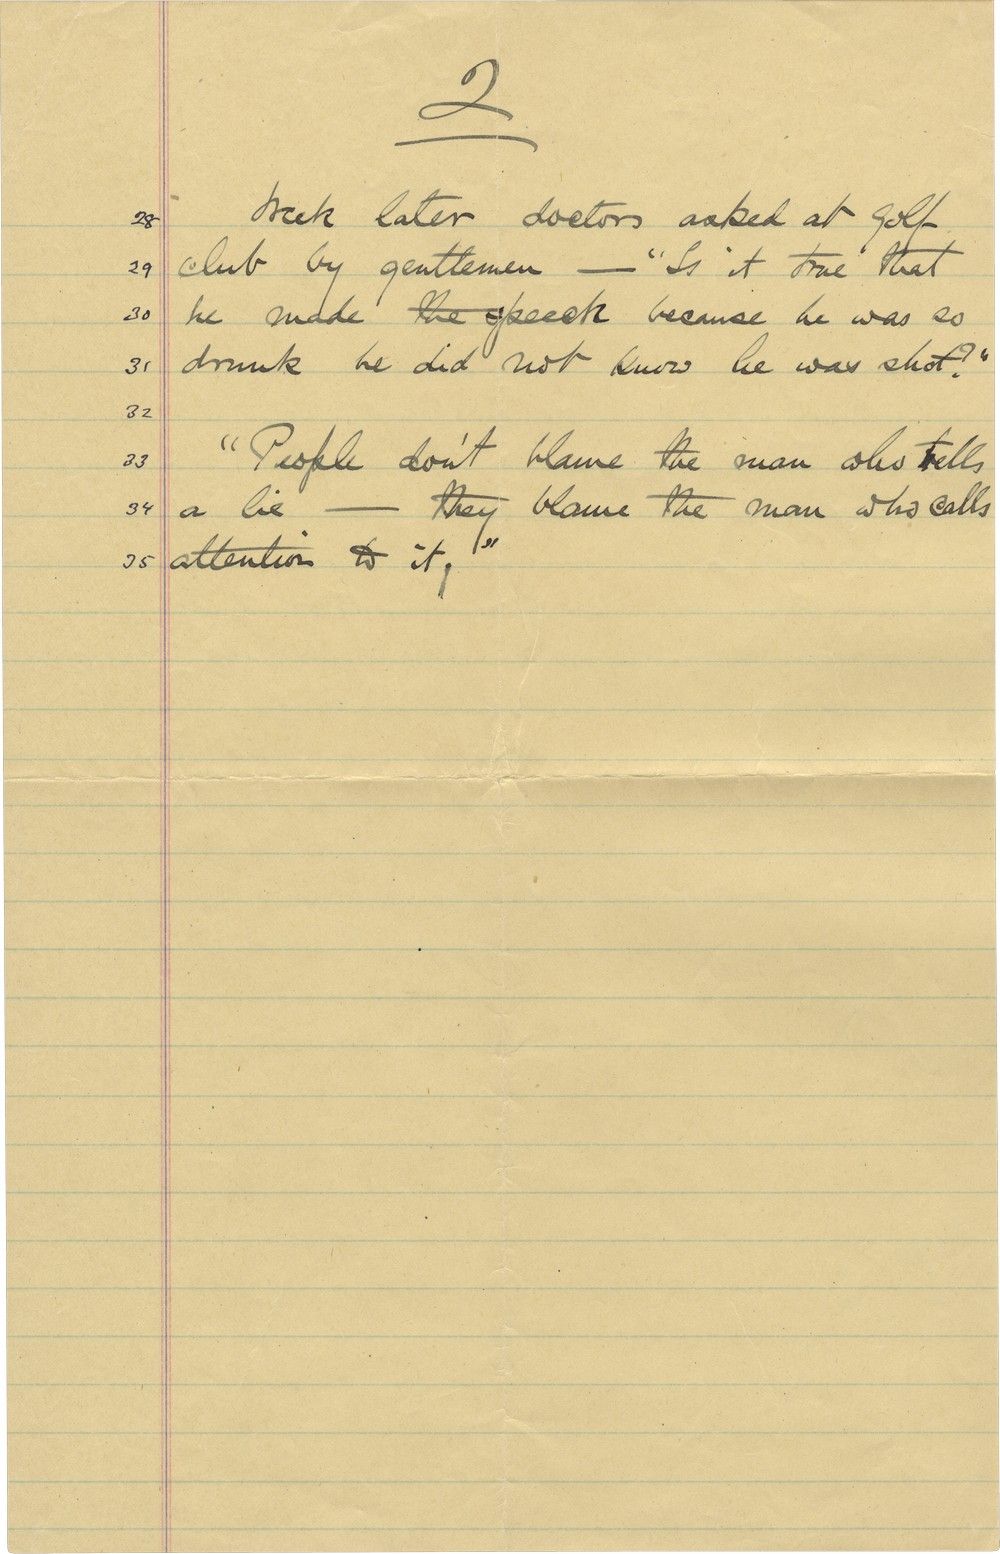 2
28 Week later doctors asked at golf
29 club by gentlemen — "Is it true that
30 he made the speech because he was so
31 drunk he did not know he was shot?"
32
33 "People don't blame the man who tells
34 a lie — they blame the man who calls
35 attention to it,"